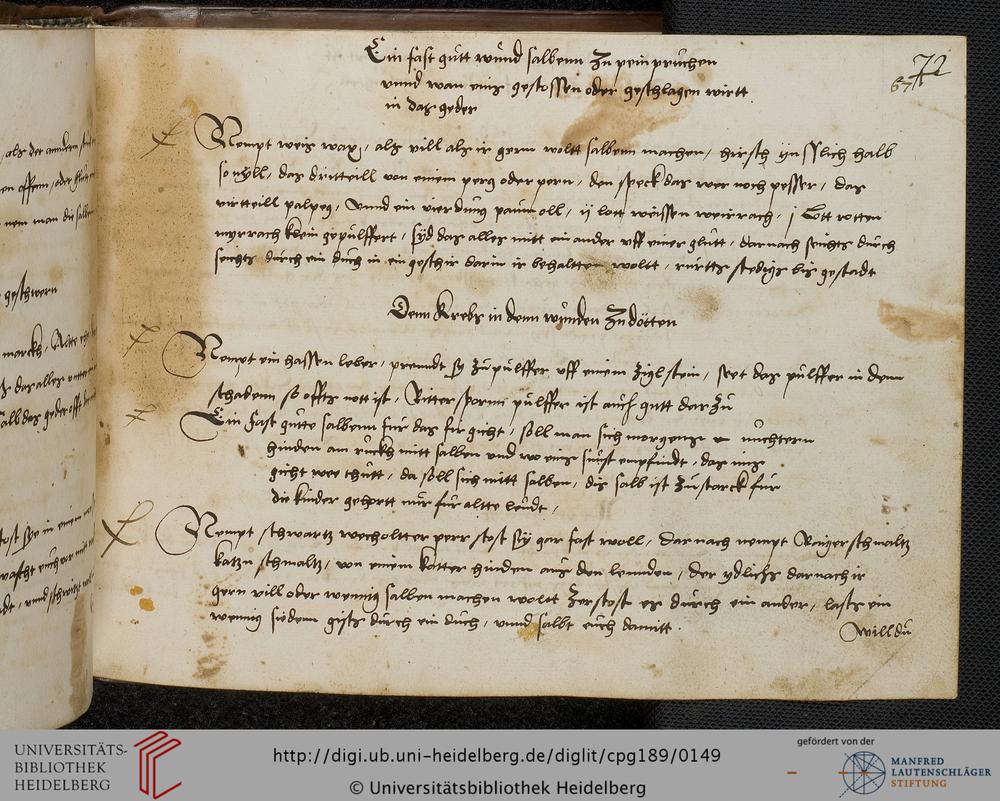 72
67
Ein fast gutt wund salbenn zu pein pruchen
unnd wan eins gestossen oder geschlagen wirtt
in das geder
Nempt weis wax, als vill als ir gern woltt salbenn machen, hirsch ynsslich halb
so vyll, das dritteill von einem perg oder pern, den speck das wer noch pesser, das
virtteill palpeg, Unnd ein vierdung paum oll, ij lott weissen weirrach, j Lott rotten
myrrach klein gepulffert, syd das alles mitt ein ander uff einer glutt, darnach seichts durch
seichts durch ein duch in ein geschir darin ir behaltten woltt, rurtts stedigs bis gestadt
Denn Krebs in denn wunden zu dotten
Nempt ein hassen leber, prenndt sy zu pulffer uff einem zigl stein, seet das pulffer in denn
schadenn so offts nott ist, Ritter spornn pulffer ist auch gutt dar zu
Ein fast gutte salbenn fur das fergicht, soll man sich morgens nuchtern
hinden am ruckh mitt salben und wo eins sunst empfindt, das ins
gicht wee thutt, da soll sich mitt salben, dis salb ist zu starck fur
die kinder gehortt nur fur altte leudt,
Nempt schwartz wecholtter perr stost sy gar fast woll, darnach nempt Raiger schmaltz
katzn schmaltz, von einem katter hinden aus den lennden, der ydlichs darnach ir
gern vill oder wennig salben machen wollt zerstost es durch ein ander, lasts ein
wennig siedenn gists durch ein duch, unnd salbt euch damitt.
Willdu
als der anndern
marckh,
das alles
UNIVERSITÄTS-
BIBLIOTHEK
HEIDELBERG
http://digi.ub.uni-heidelberg.de/diglit/cpg189/0149
© Universitätsbibliothek Heidelberg
gefördert von der
MANFRED
LAUTENSCHLÄGER
STIFTUNG